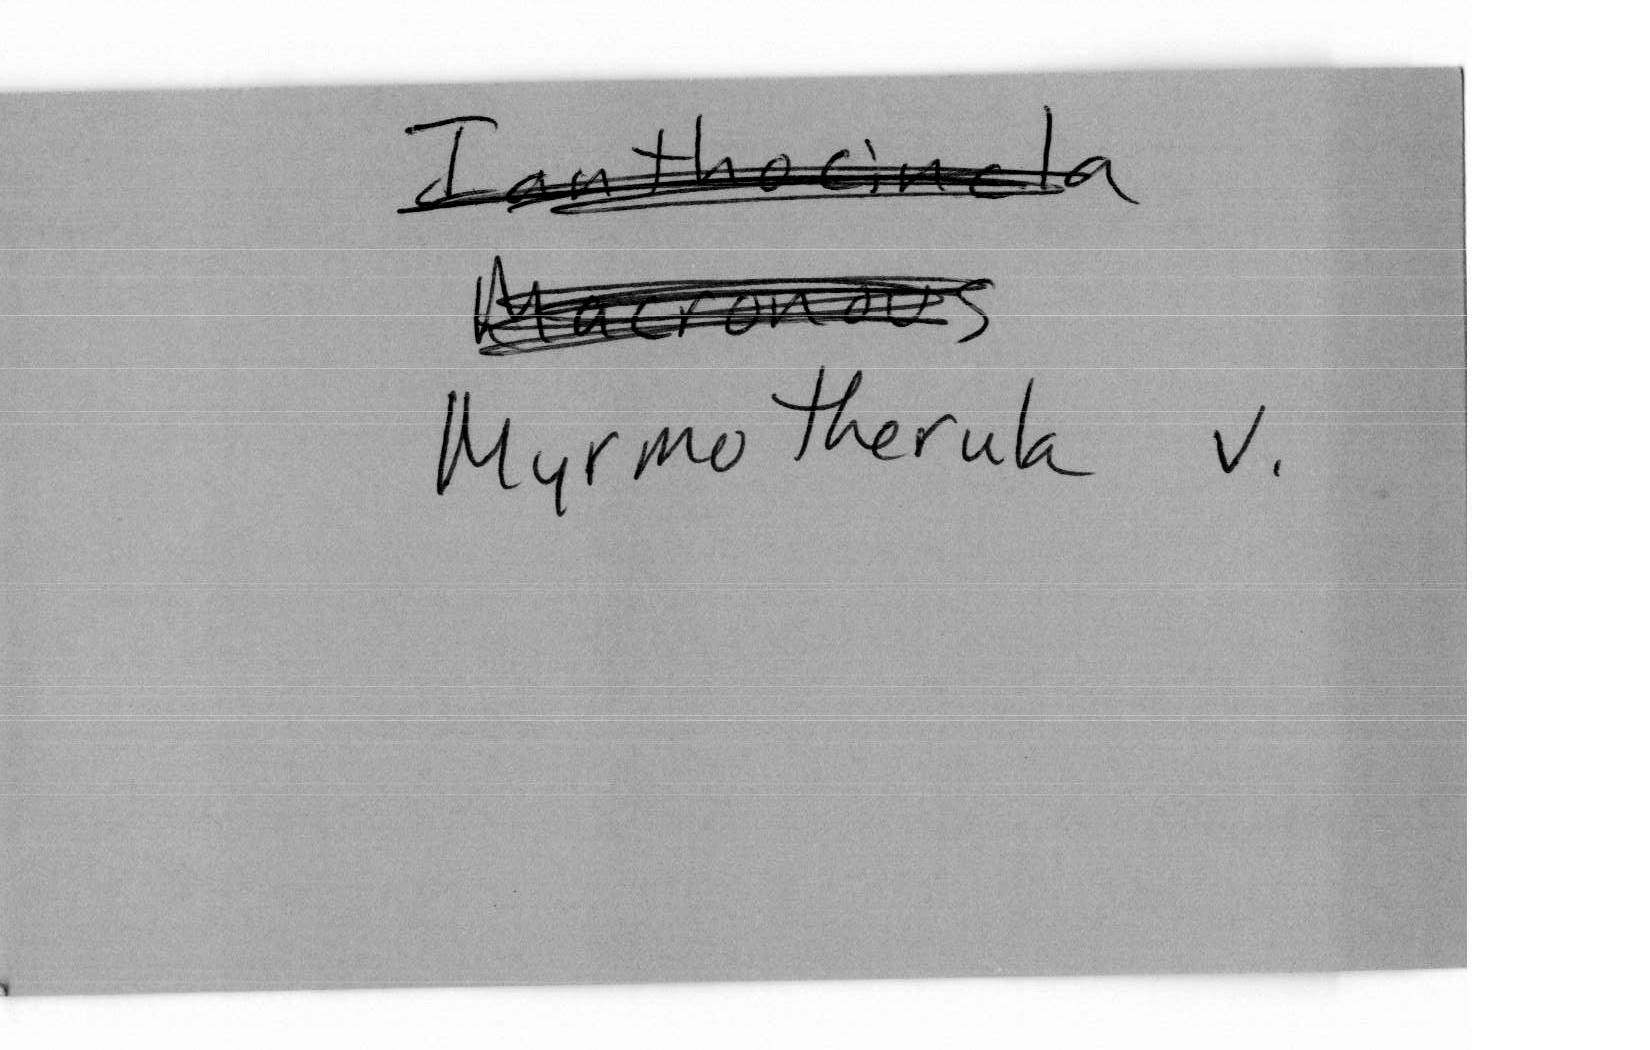 Ianthocincla
Macronous
Myrmotherula v.